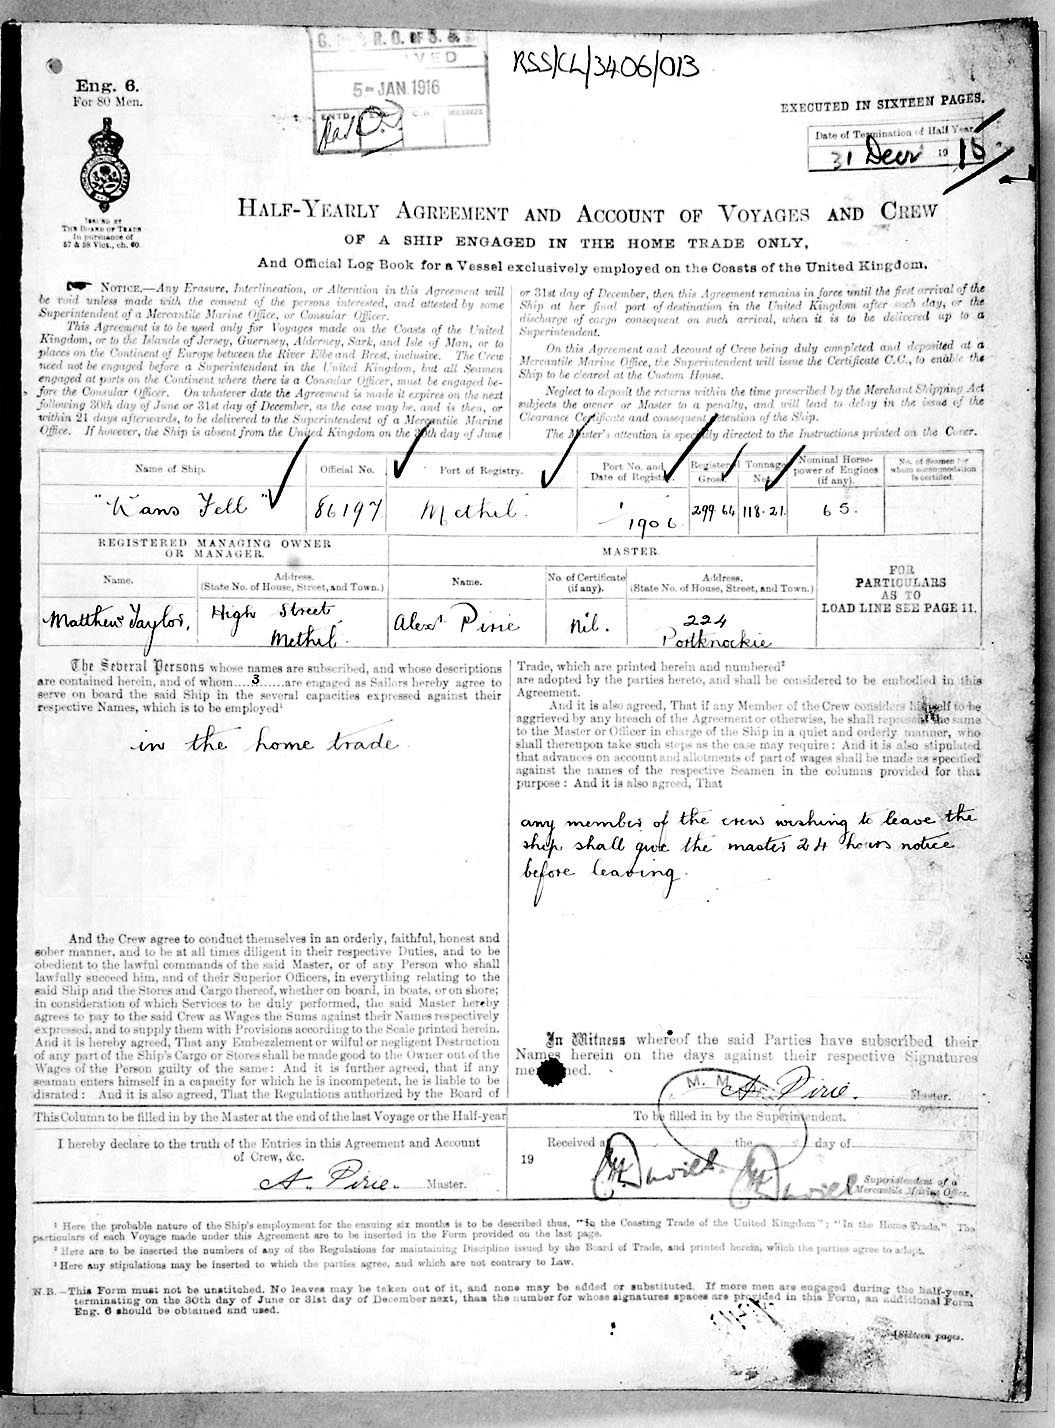 RSS/CL/3406/013
Eng. 6.
For 80 Men.
R. O. OF S. & S
5 - JAN 1916
EXECUTED IN SIXTEEN PAGES.
Date of Termination of Half Year
31 Decr 19 15
ISSUED BY
THE BOARD OF TRADE
In pursuance of
57 & 58 Vict., ch. 60.
HALF-YEARLY AGREEMENT AND ACCOUNT OF VOYAGES AND CREW
OF A SHIP ENGAGED IN THE HOME TRADE ONLY,
And Official Log Book for a Vessel exclusively employed on the Coasts of the United Kingdom.
NOTICE.—Any Erasure, Interlineation, or Alteration in this Agreement will
be void unless made with the consent of the persons interested, and attested by some
Superintendent of a Mercantile Marine Office, or Consular Officer.
This Agreement is to be used only for Voyages made on the Coasts of the United
Kingdom, or to the Islands of Jersey, Guernsey, Alderney, Sark, and Isle of Man, or to
places on the Continent of Europe between the River Elbe and Brest, inclusive. The Crew
need not be engaged before a Superintendent in the United Kingdom, but all Seamen
engaged at ports on the Continent where there is a Consular Officer, must be engaged be-
fore the Consular Officer. On whatever date the Agreement is made it expires on the next
following 30th day of June or 31st day of December, as the case may be, and is then, or
within 21 days afterwards, to be delivered to the Superintendent of a Mercantile Marine
Office. If however, the Ship is absent from the United Kingdom on the 30th day of June
or 31st day of December, then this Agreement remains in force until the first arrival of the
Ship at her final port of destination in the United Kingdom after such day, or the
discharge of cargo consequent on such arrival, when it is to be delivered up to a
Superintendent.
On this Agreement and Account of Crew being duly completed and deposited at a
Mercantile Marine Office, the Superintendent will issue the Certificate C.C., to enable the
Ship to be cleared at the Custom House.
Neglect to deposit the returns within the time prescribed by the Merchant Shipping Act
subjects the owner or Master to a penalty, and will lead to delay in the issue of the
Clearance Certificate and consequent detention of the Ship.
The Master's attention is specially directed to the Instructions printed on the Cover.
Name of Ship. Official No. Port of Registry. Port No. and Date of Registry. Registered Tonnage Gross. Net. Nominal Horse-power of Engines (if any). No. of Seamen for whom accommodation is certified.
"Kans Fell" 86197 Methil. 1906 299.64 118.21. 65.
REGISTERED MANAGING OWNER
OR MANAGER.
MASTER.
Name. Address. (State No. of House, Street, and Town.) Name. No. of Certificate (if any). Address. (State No. of House, Street, and Town.)
FOR
PARTICULARS
AS TO
LOAD LINE SEE PAGE 11.
Matthew Taylor, High Street, Methil. Alexr. Pirie Nil. 224 Portknockie
The Several Persons whose names are subscribed, and whose descriptions
are contained herein, and of whom....3......are engaged as Sailors hereby agree to
serve on board the said Ship in the several capacities expressed against their
respective Names, which is to be employed¹
in the home trade.
And the Crew agree to conduct themselves in an orderly, faithful, honest and
sober manner, and to be at all times diligent in their respective Duties, and to be
obedient to the lawful commands of the said Master, or of any Person who shall
lawfully succeed him, and of their Superior Officers, in everything relating to the
said Ship and the Stores and Cargo thereof, whether on board, in boats, or on shore;
in consideration of which Services to be duly performed, the said Master hereby
agrees to pay to the said Crew as Wages the Sums against their Names respectively
expressed, and to supply them with Provisions according to the Scale printed herein.
And it is hereby agreed, That any Embezzlement or wilful or negligent Destruction
of any part of the Ship's Cargo or Stores shall be made good to the Owner out of the
Wages of the Person guilty of the same: And it is further agreed, that if any
seaman enters himself in a capacity for which he is incompetent, he is liable to be
disrated: And it is also agreed, That the Regulations authorized by the Board of
Trade, which are printed herein and numbered²
are adopted by the parties hereto, and shall be considered to be embodied in this
Agreement.
And it is also agreed, That if any Member of the Crew considers himself to be
aggrieved by any breach of the Agreement or otherwise, he shall represent the same
to the Master or Officer in charge of the Ship in a quiet and orderly manner, who
shall thereupon take such steps as the case may require: And it is also stipulated
that advances on account and allotments of part of wages shall be made as specified
against the names of the respective Seamen in the columns provided for that
purpose: And it is also agreed, That
any member of the crew wishing to leave the
ship shall give the master 24 hours notice
before leaving.
In Witness whereof the said Parties have subscribed their
Names herein on the days against their respective Signatures
mentioned.
M. M.
A. Pirie. Master.
This Column to be filled in by the Master at the end of the last Voyage or the Half-year
I hereby declare to the truth of the Entries in this Agreement and Account
of Crew, &c.
A. Pirie. Master.
To be filled in by the Superintendent.
Received at the day of
19
Superintendent of a
Mercantile Marine Office.
¹ Here the probable nature of the Ship's employment for the ensuing six months is to be described thus, "In the Coasting Trade of the United Kingdom"; "In the Home Trade." The
particulars of each Voyage made under this Agreement are to be inserted in the Form provided on the last page.
² Here are to be inserted the numbers of any of the Regulations for maintaining Discipline issued by the Board of Trade, and printed herein, which the parties agree to adopt.
³ Here any stipulations may be inserted to which the parties agree, and which are not contrary to Law.
N.B.—This Form must not be unstitched. No leaves may be taken out of it, and none may be added or substituted. If more men are engaged during the half-year,
terminating on the 30th day of June or 31st day of December next, than the number for whose signatures spaces are provided in this Form, an additional Form
Eng. 6 should be obtained and used.
Sixteen pages.